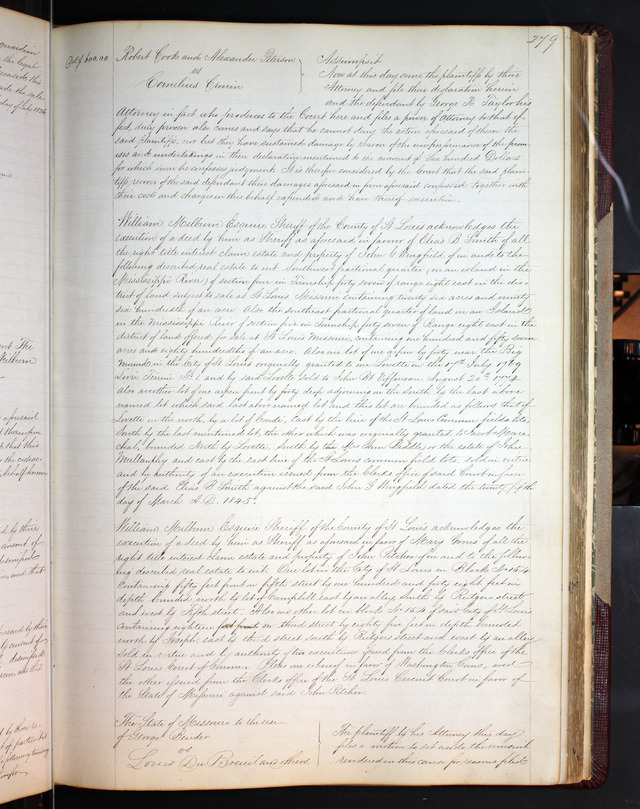 279
Dbt $600.00
Robert Cook and Alexander Peterson
vs
Cornelius Cronin
Assumpsit
Now at this day come the plaintiffs by their
Attorney and file their declaration herein
and the defendant by George F. Taylor his
Attorney in fact who produces to the Court here and files a power of Attorney to that ef-
fect, duly proven also comes and says that he cannot deny the action aforesaid of them the
said plaintiffs, nor but they have sustained damages by reason of the nonperformance of the prom-
ises and undertakings in their declaration mentioned to the amount of Six hundred Dollars
for which sum he confesses judgment. It is therefore considered by the Court that the said plain-
tiffs recover of the said defendant their damages aforesaid in form aforesaid confessed together with
their costs and charges in this behalf expended and have thereof execution.
William Milburn Esquire Sheriff of the County of St Louis acknowledges the
execution of a deed by him as Sheriff as aforesaid in favor of Elias B Smith of all
the right title interest claim estate and property of John G Wingfield of in and to the
following described real estate to wit Southwest fractional quarter (on an island in the
Mississippi River) of section four in Township forty seven of range eight east in the dis-
trict of land subject to sale at St Louis Missouri containing twenty six acres and ninety
six hundredth of an acre. Also the southeast fractional quarter of land on an Island
in the Mississippi River of section five in Township forty seven of Range eight east in the
district of land offered for sale at St Louis Missouri, containing one hundred and fifty seven
acres and eighty hundredths of an acre. Also one lot of one arpen by forty near the Big
Mound in the City of St Louis originally granted to one Lovette on the 17th July 1769
Livre Terrien No 1 and by said Lovette sold to John Bt August 20th
also another lot one arpen front by forty deep adjoining on the South by the last above
named lot which said last above named lot and this lot are bounded as follows that of
Lovette in the north by a lot of East by the line of the St Louis Common fields lots,
South by the last mentioned lot, the other which was originally granted to
bounded North by South by Ann Biddle, or the estate of John
Mullanphy and east by the said line of the St Louis common field lots, sold in virtue
and by authority of an execution issued from the Clerks office of said Court in favor
of the said Elias B Smith against the said John G Wingfield dated the twenty fifth
day of March A.D. 1845.
William Milburn Esquire Sheriff of the County of St Louis acknowledges the
execution of a deed by him as Sheriff as aforesaid in favor of Mary Coons of all the
right title interest claim estate and property of John Pitcher of in and to the follow-
ing described real estate to wit. One lot in the City of St Louis in Block No 154
Containing fifty feet front on fifth street by one hundred and forty eight feet in
depth bounded north by lot of Campbell east by an alley South by Rutgers street
and west by Fifth street. Also one other lot in block No 154 of said City of St Louis
Containing eighteen feet front on third street by eighty five feet in depth bounded
north by Joseph east by the 3d street South by Rutgers street and west by an alley
sold in virtue and by authority of two executions issued from the Clerks office of the
St Louis Court of Common Pleas one whereof in favor of Washington Coons, and
the other issued from the Clerks office of the St Louis Circuit Court in favor of
the State of Missouri against said John Pitcher.
The State of Missouri to the use
of George Gender
vs
Louis Du Breuil and others
The plaintiff by his Attorney this day
files a motion to set aside the nonsuit
rendered in this cause for reasons filed.